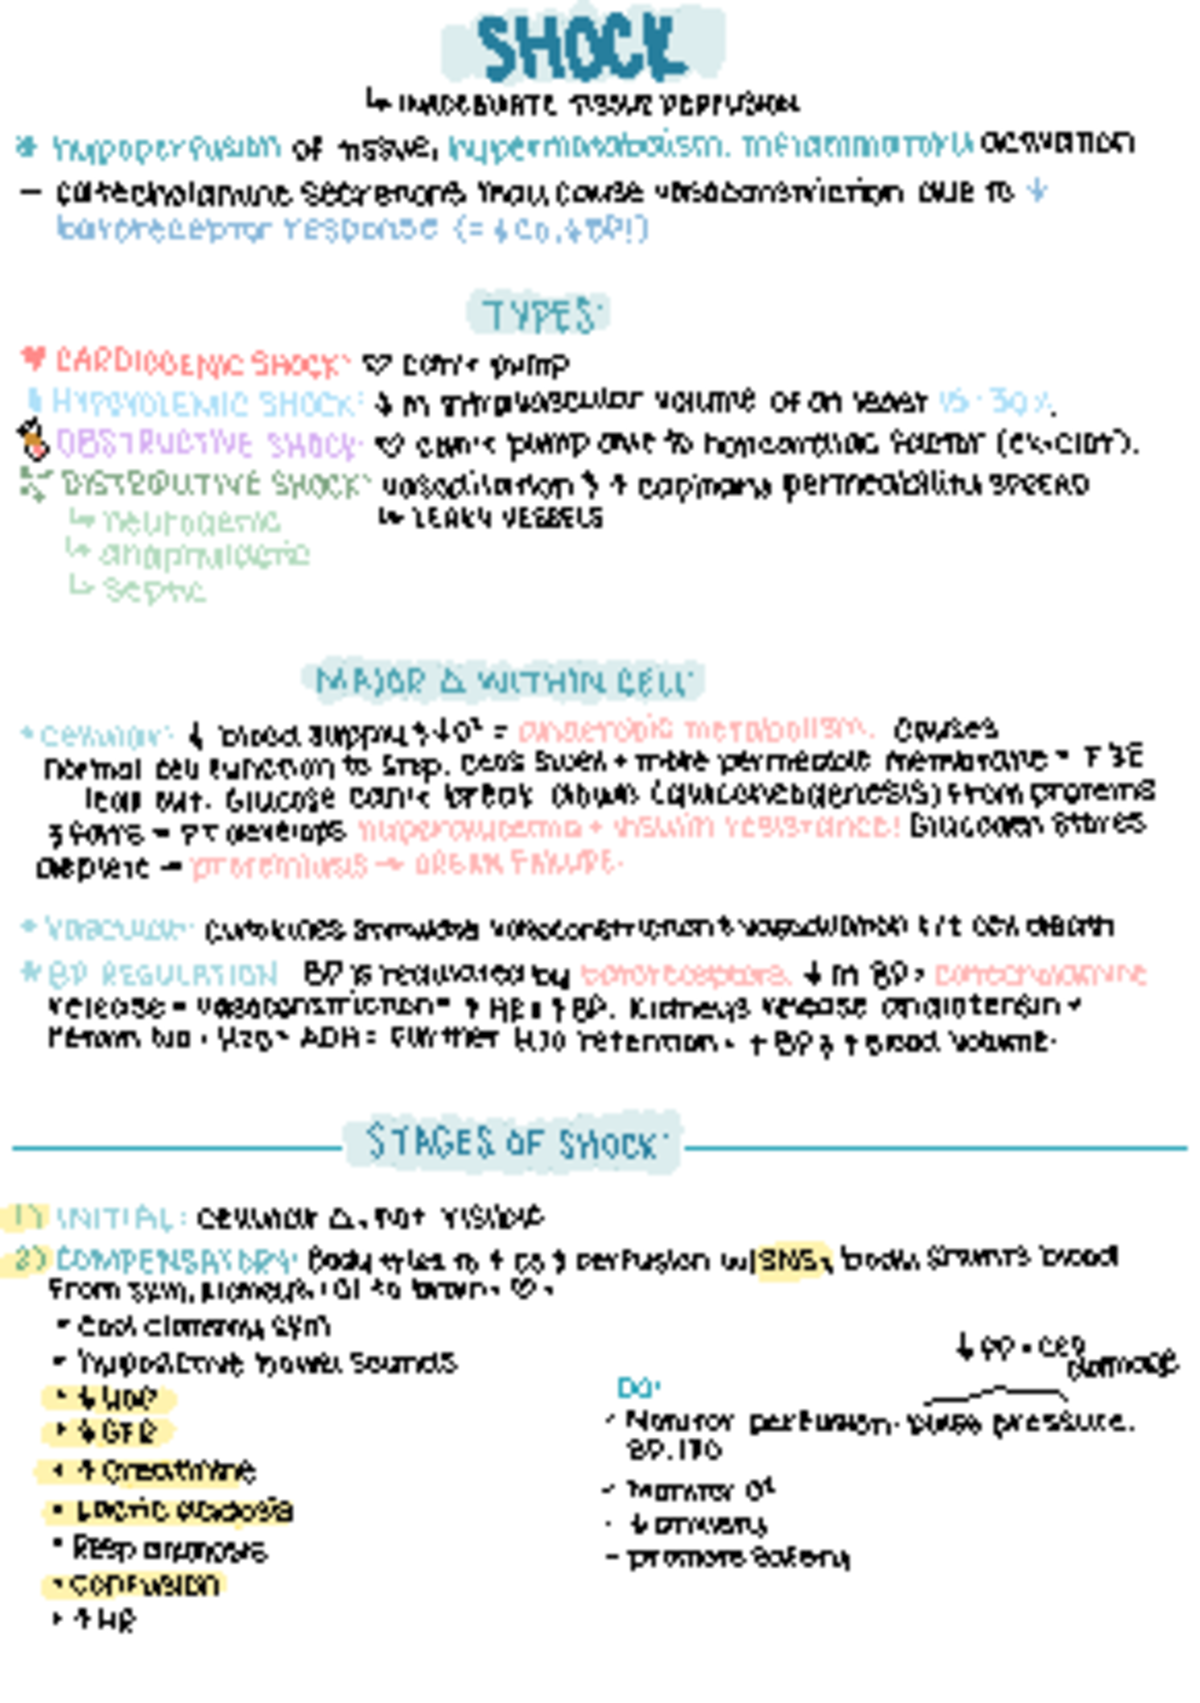 SHOCK
↳ INADEQUATE TISSUE PERFUSION
* hypoperfusion of tissue, hypermetabolism, inflammatory activation
- catecholamine secretions may cause vasoconstriction due to ↓
baroreceptor response (= ↓ CO, ↓ BP!)
TYPES:
♥ CARDIOGENIC SHOCK: ♡ can't pump
HYPOVOLEMIC SHOCK: ↓ in intravascular volume of at least 15-30%
OBSTRUCTIVE SHOCK: ♡ can't pump due to noncardiac factor (ex-clot).
DISTRIBUTIVE SHOCK: vasodilation & ↑ capillary permeability SPREAD
↳ neurogenic ↳ LEAKY VESSELS
↳ anaphylactic
↳ septic
MAJOR Δ WITHIN CELL:
* cellular: ↓ blood supply & ↓ O² = anaerobic metabolism. Causes
normal cell function to stop. Cells swell + more permeable membrane = F & E
leak out. Glucose can't break down (gluconeogenesis) from proteins
& fats = PT develops hyperglycemia + insulin resistance! Glucogen stores
deplete → proteolysis → ORGAN FAILURE.
* Vascular: cytokines stimulate vasoconstriction & vasodilation r/t cell death
* BP REGULATION BP is regulated by baroreceptors. ↓ in BP = catecholamine
release = vasoconstriction = ↑ HR & ↑ BP. Kidneys release angiotensin +
retain Na + H20 = ADH = further H20 retention = ↑ BP & ↑ blood volume.
STAGES OF SHOCK:
1) INITIAL: cellular Δ, not visible
2) COMPENSATORY: Body tries to ↑ CO & perfusion w/ SNS, body shunts blood
from skin, kidneys, GI to brain + ♡.
• Cool clammy skin
• hypoactive bowel sounds
• ↓ UOP
• ↓ GFR
• ↑ Creatinine
• Lactic acidosis
• Resp alkalosis
• Confusion
• ↑ HR
↓ PP = cell
damage
DO:
- Monitor perfusion: pulse pressure,
BP, I&O
- Monitor O²
- ↓ anxiety
- promote safety